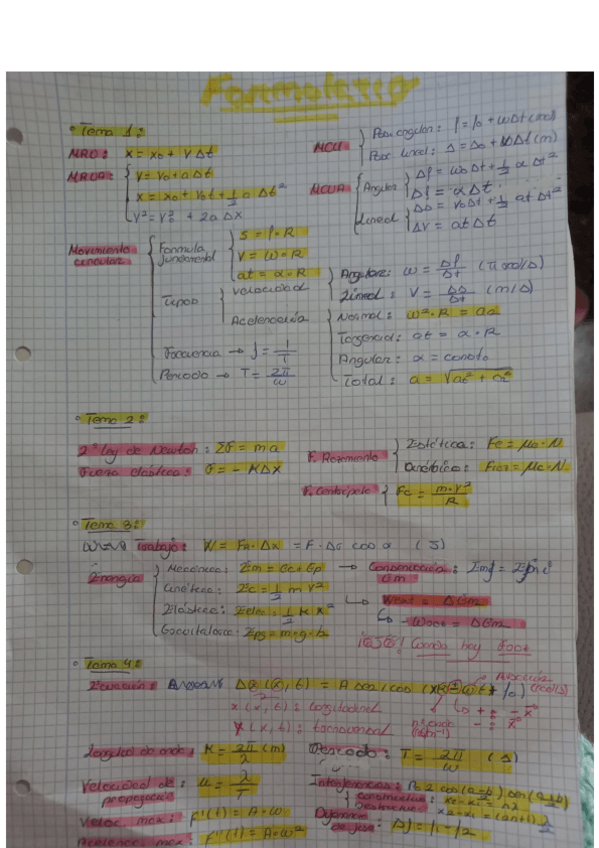 Formulario
• Tema 1:
MRU: x = x0 + v Δt
MRUA: { v = v0 + a Δt
x = x0 + v0 t + 1/2 a Δt²
v² = v0² + 2a Δx
MCU { Pos. angular: φ = φ0 + ωΔt (rad)
Pos. lineal: Δ = Δ0 + vΔt (m)
MCUA { Angular { Δφ = ω0 Δt + 1/2 α Δt²
Δφ = α Δt
Lineal { ΔΔ = v0 Δt + 1/2 at Δt²
Δv = at Δt
Movimiento circular { Formula fundamental { s = φ · R
v = ω · R
at = α · R
Tipos { Velocidad { Angular: ω = Δφ/Δt (π rad/Δ)
Lineal: v = ΔΔ/Δt (m/Δ)
Aceleración { Normal: ω² · R = an
Tangencial: at = α · R
Angular: α = const.
Total: a = √
Frecuencia → f = 1/T
Periodo → T = 2π/ω
• Tema 2:
2ª ley de Newton: ΣF = m a
Fuerza elástica: F = - K Δx
F. Rozamiento { Estática: Fe = μe · N
Dinámica: Froz = μc · N
F. Centrípeta { Fc = m · v²/R
• Tema 3:
Trabajo: W = Fx · Δx = F · Δr cos α (J)
Energía { Mecánica: Em = Ec + Ep → Conservación Em: Emf = Emi
Cinética: Ec = 1/2 m v² ↳ = ΔEm
Elástica: Eelas = 1/2 K x² ↳ - = ΔEm
Gravitatoria: Epg = m · g · h ¡OJO! Cuando hay Froz
• Tema 4:
Ecuación:
x (x, t): longitudinal
y (x, t): transversal
Longitud de onda: K = 2π/λ (m) Periodo: T = 2π/ω (Δ)
Velocidad de propagación: u = λ/T
Interferencias:
{ Constructiva: x2 - x1 = nλ
Destructiva: x2 - x1 = (2n+1) λ/2
Veloc max: f'(t) = A · ω
Diferencia de fase: Δφ = φ1 - φ2
Acelerac max: f''(t) = A · ω²